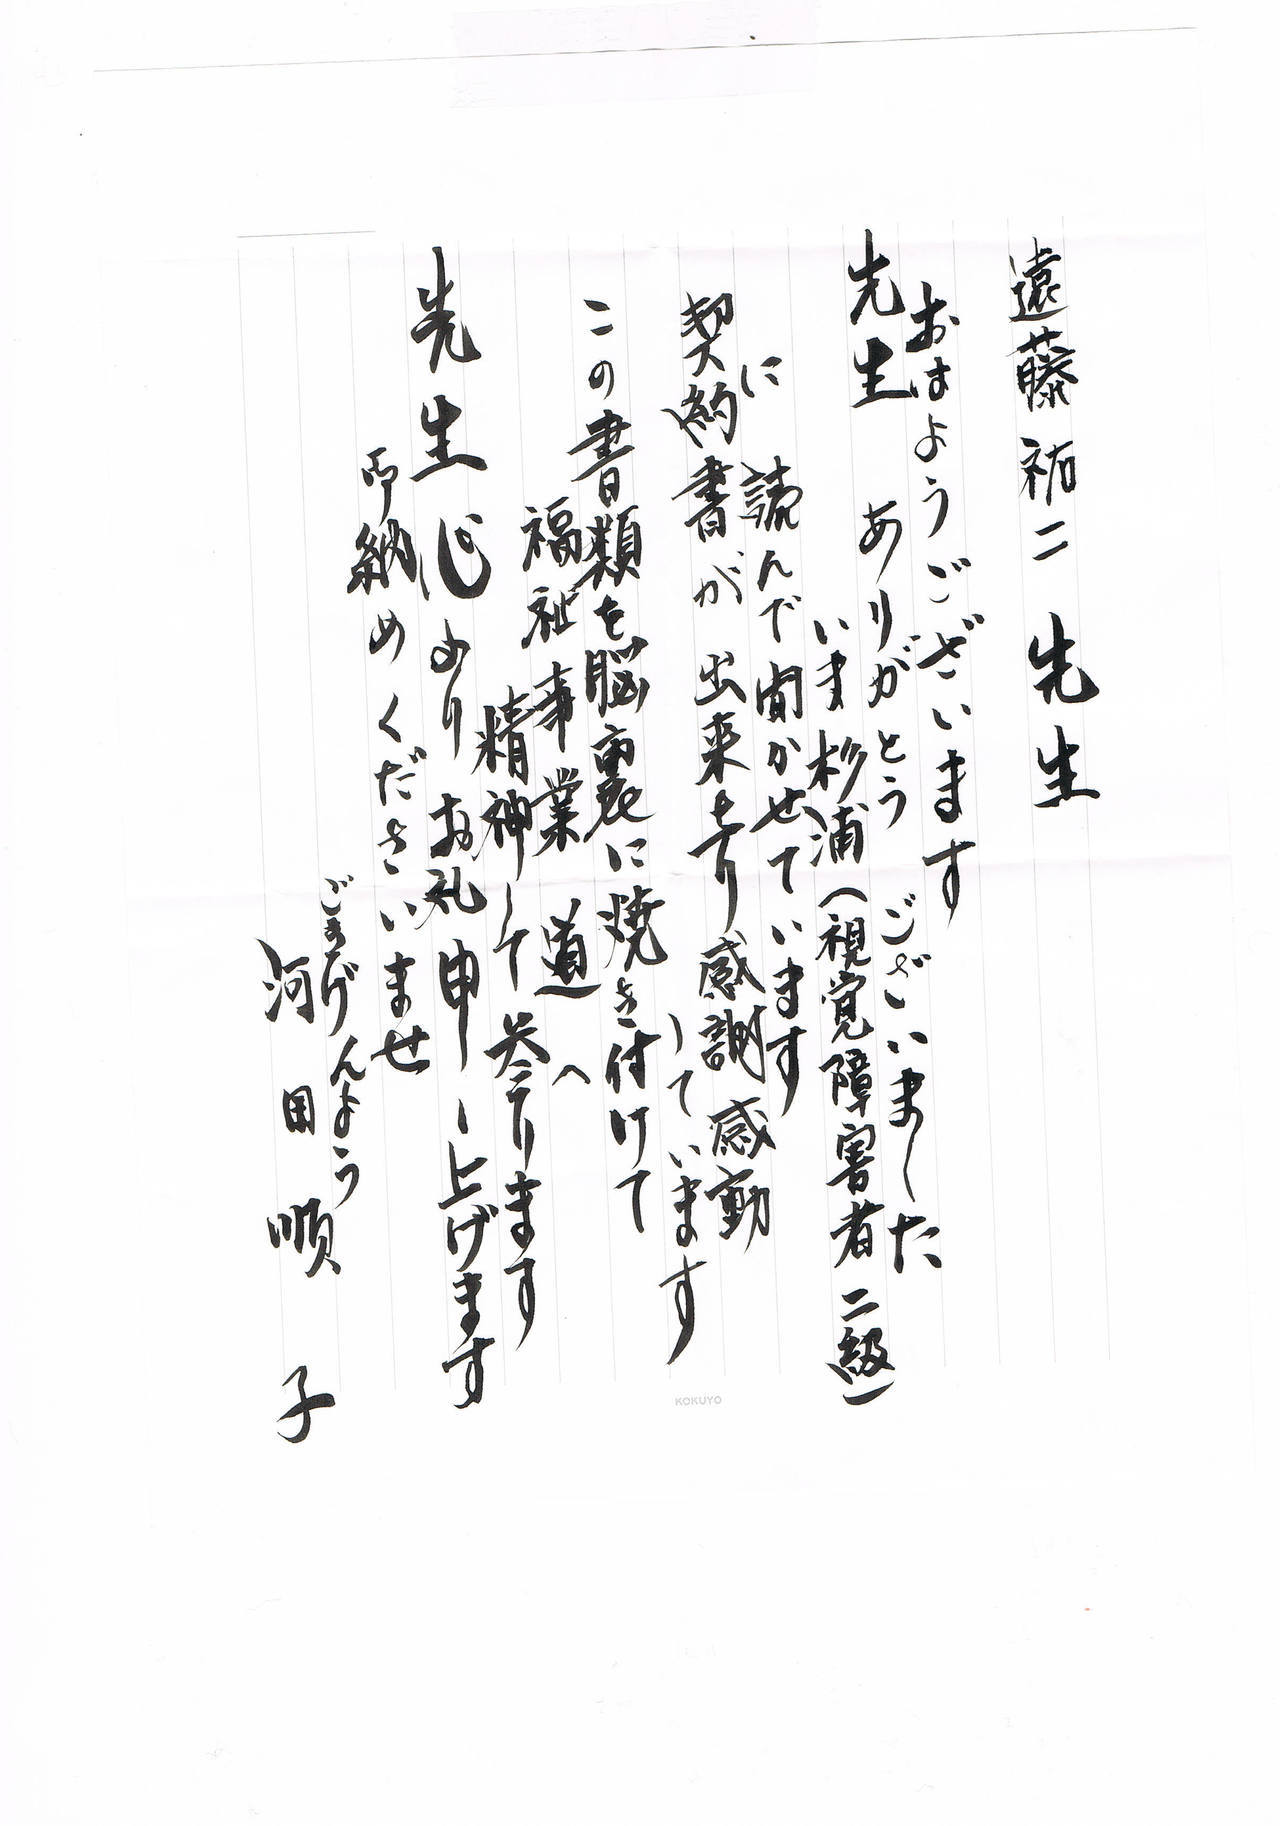 遠藤祐二 先生
おはようございます
先生 ありがとうございました
いま杉浦(視覚障害者二級)
に 読んで聞かせています
契約書が出来ており感謝感動
しています
この書類を脳裏に焼き付けて
福祉事業 道へ
精神して参ります
先生 心よりお礼申し上げます
御納めくださいませ
ごきげんよう
河田順子
KOKUYO